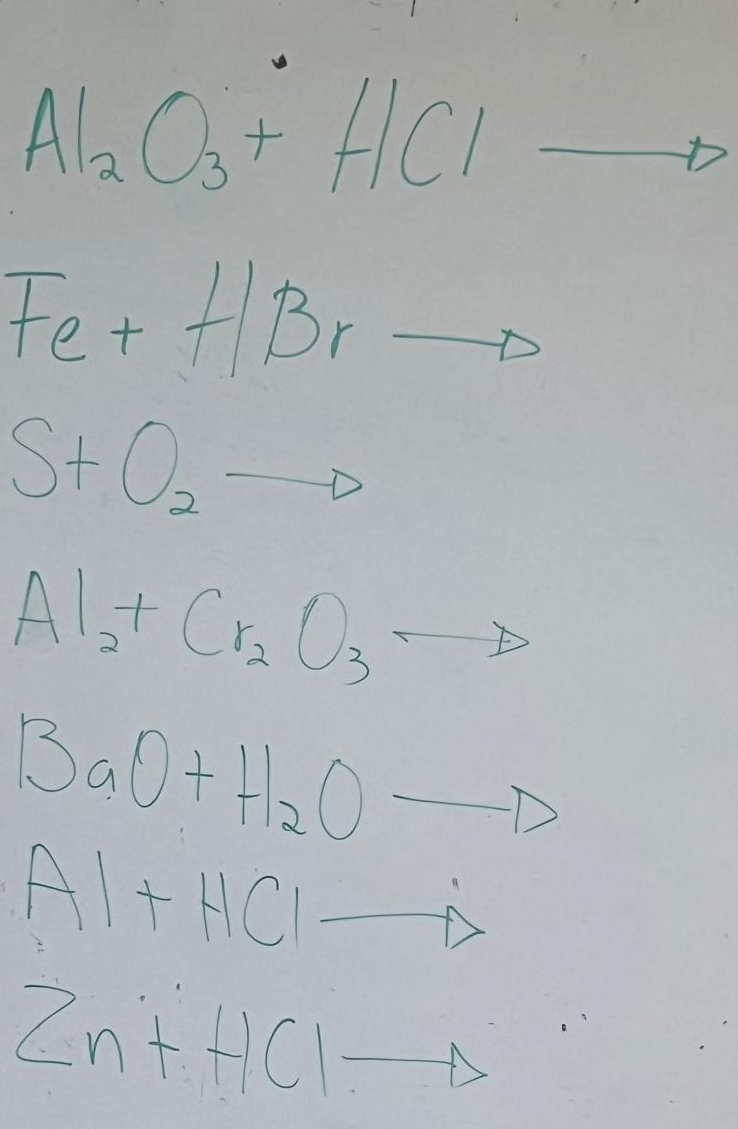 Al₂O₃ + HCl →
Fe + HBr →
S + O₂ →
Al₂ + Cr₂O₃ →
BaO + H₂O →
Al + HCl →
Zn + HCl →